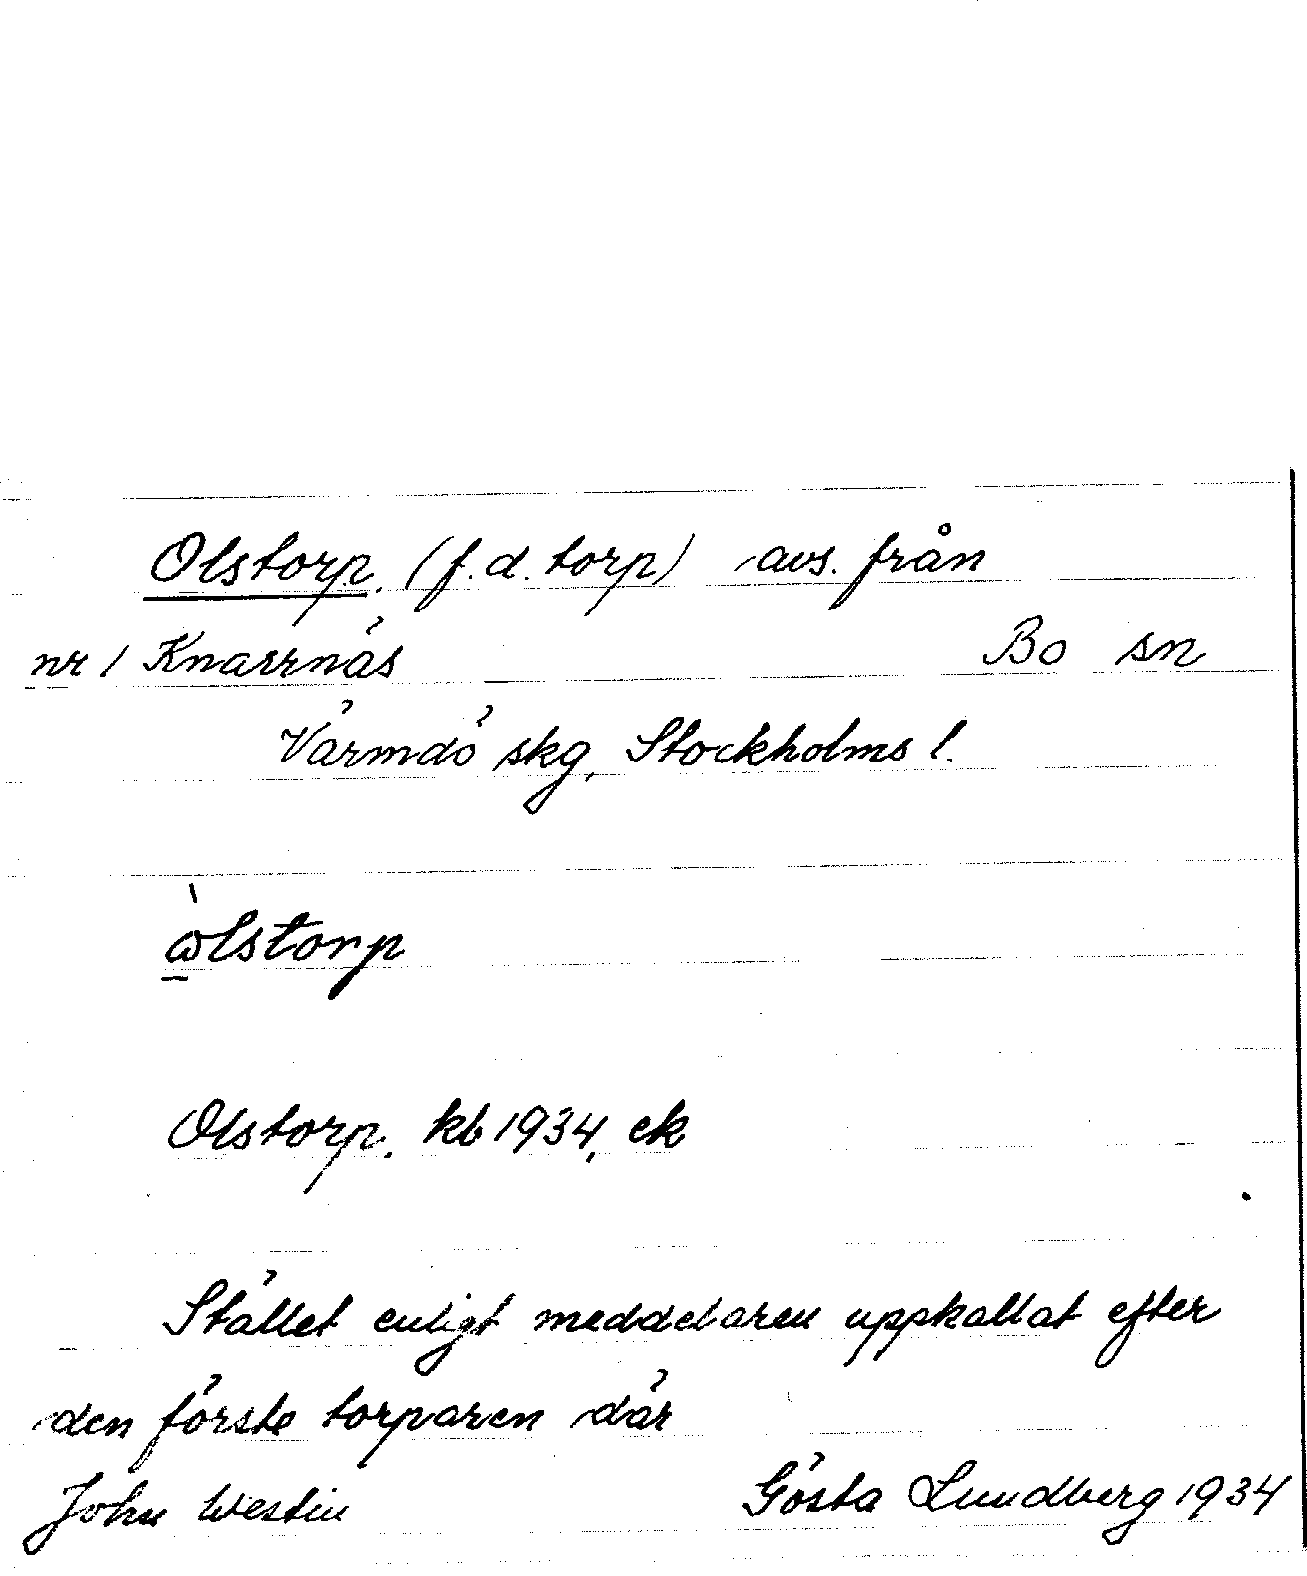 Olstorp. (f.d. torp) avs. från
nr 1 Knarrnäs Bo sn
Värmdö skg, Stockholms l.
ὼlstorp
Olstorp. kb 1934, ek
Stället enligt meddelaren uppkallat efter
den förste torparen där
John Westin Gösta Lundberg 1934